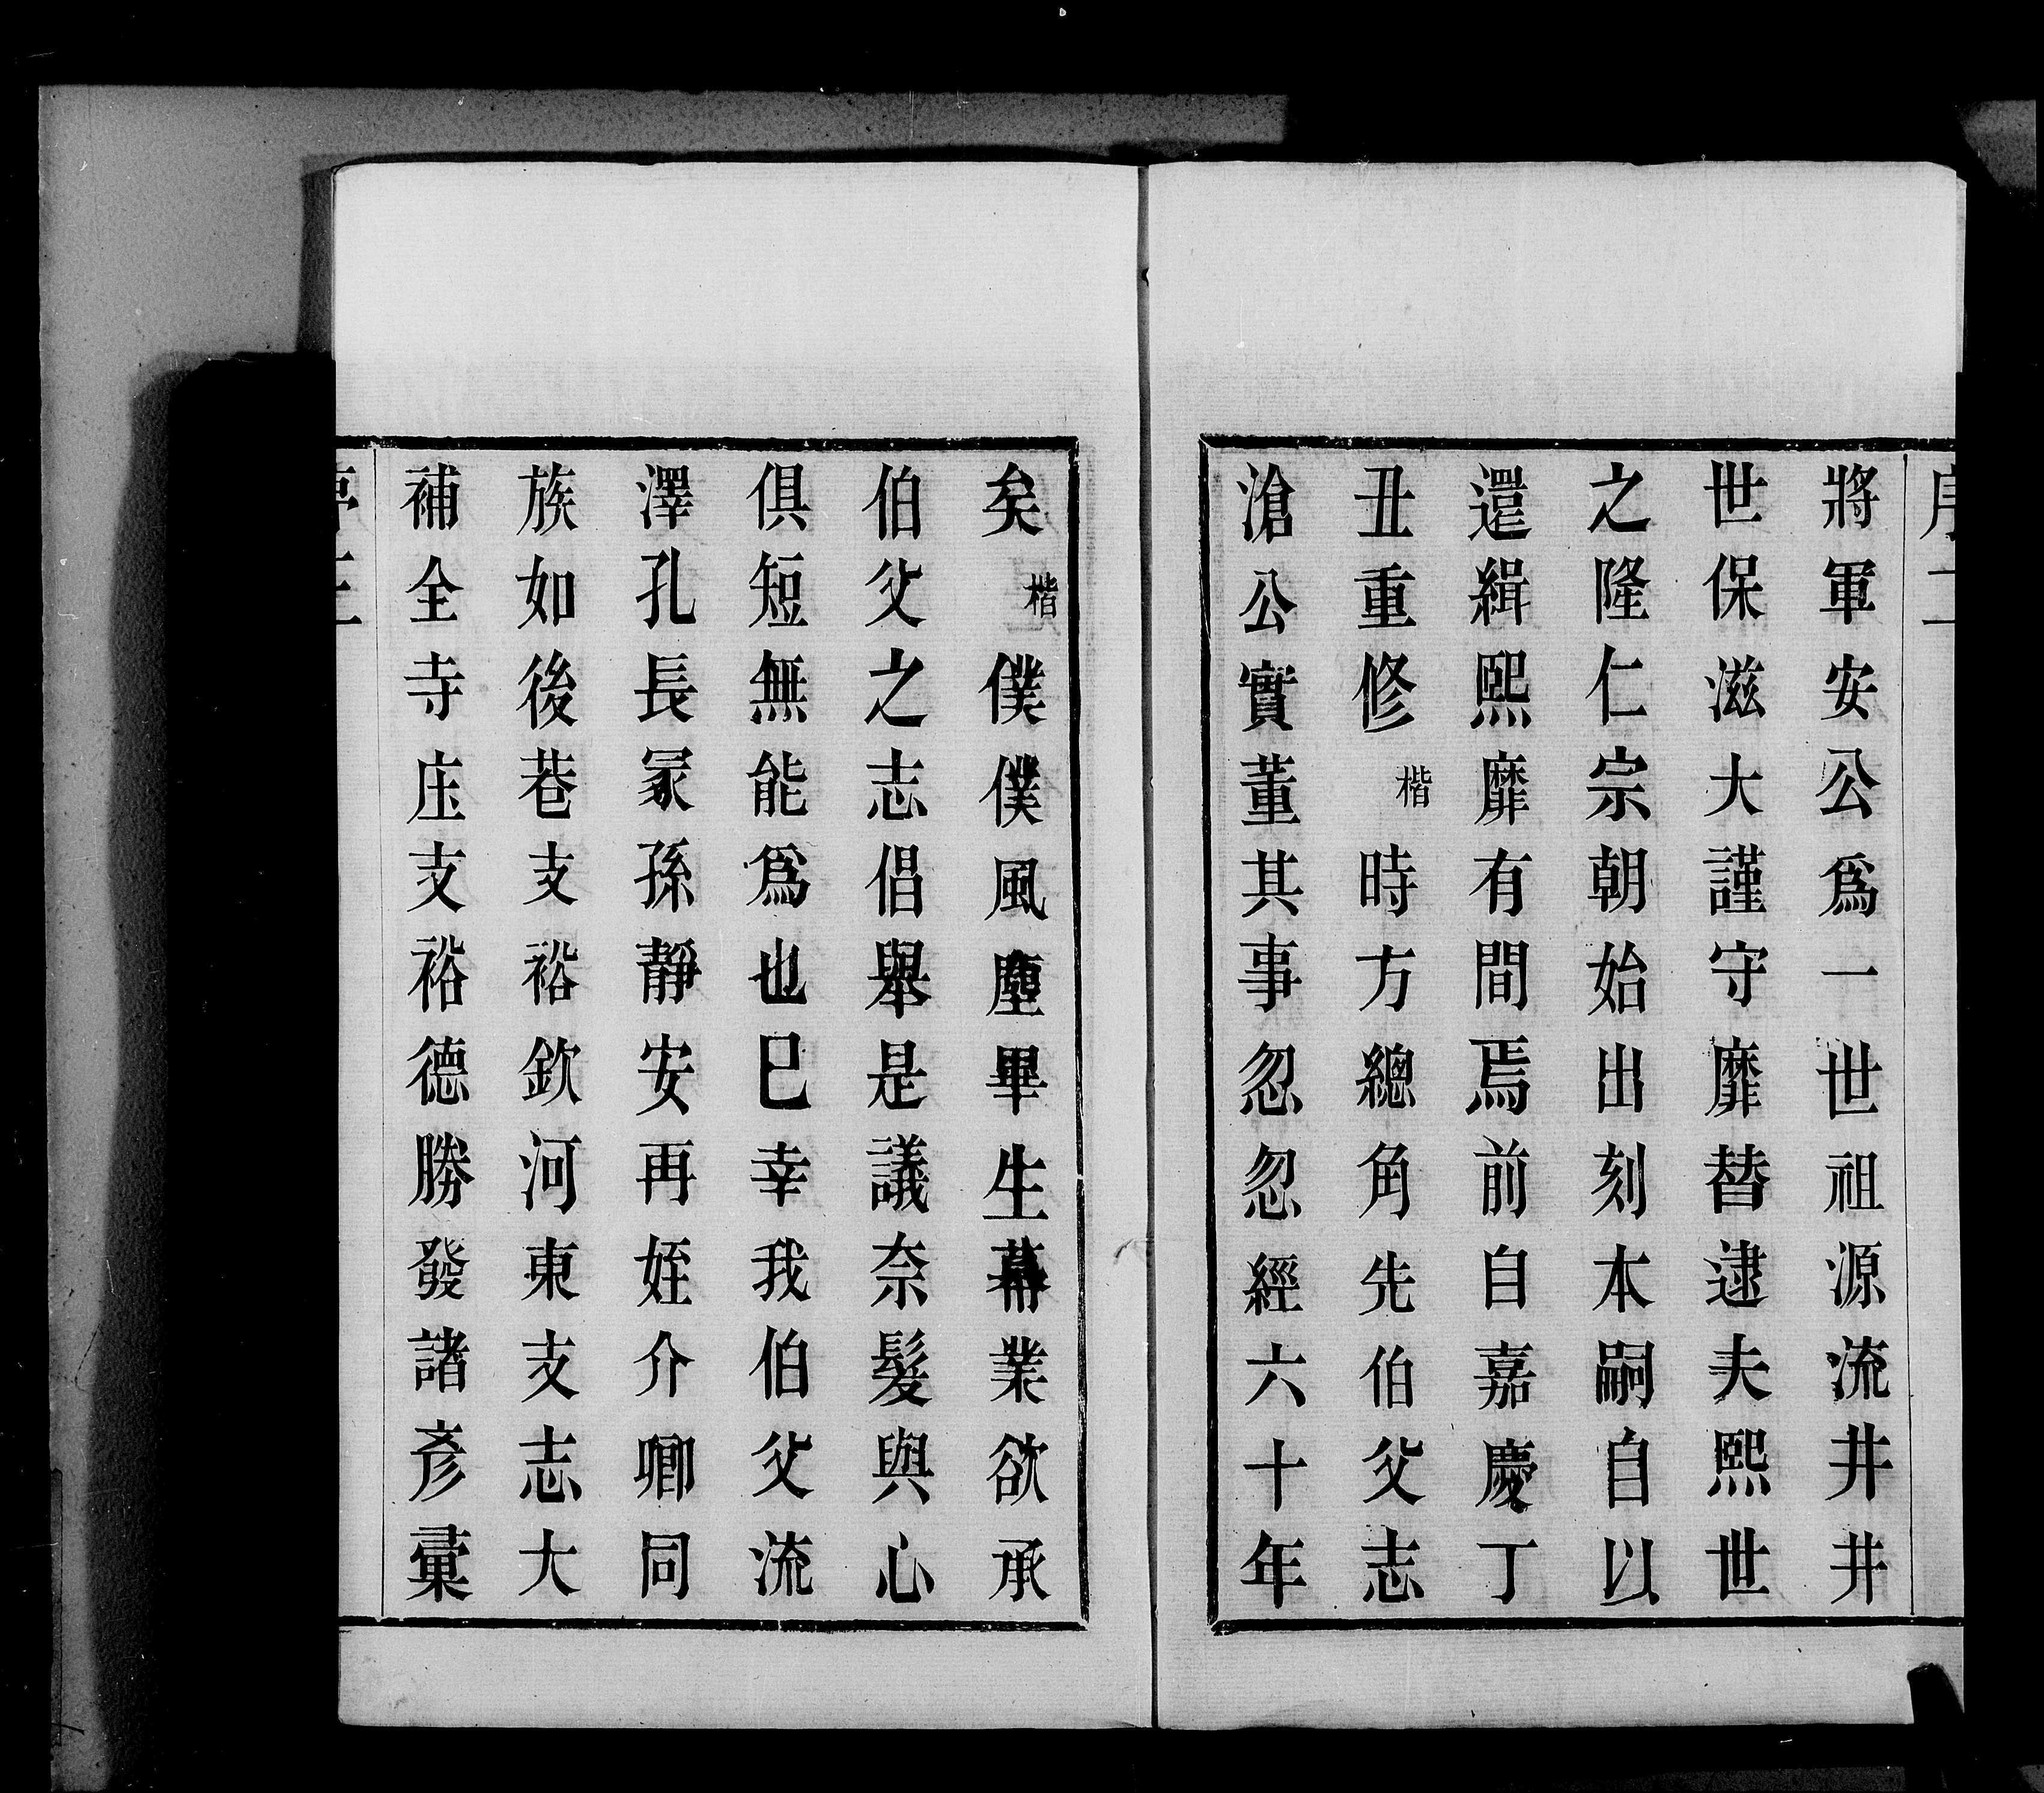 序二
將軍安公爲一世祖源流井井
世保滋大謹守靡替逮夫熙世
之隆仁宗朝始出刻本嗣自以
還緝熙靡有間焉前自嘉慶丁
丑重修楷時方總角先伯父志
滄公實董其事忽忽經六十年
矣楷僕僕風塵畢生幕業欲承
伯父之志倡舉是議奈髮與心
俱短無能爲也已幸我伯父流
澤孔長冢孫靜安再姪介卿同
族如後巷支裕欽河東支志大
補全寺庄支裕德勝發諸彥彙